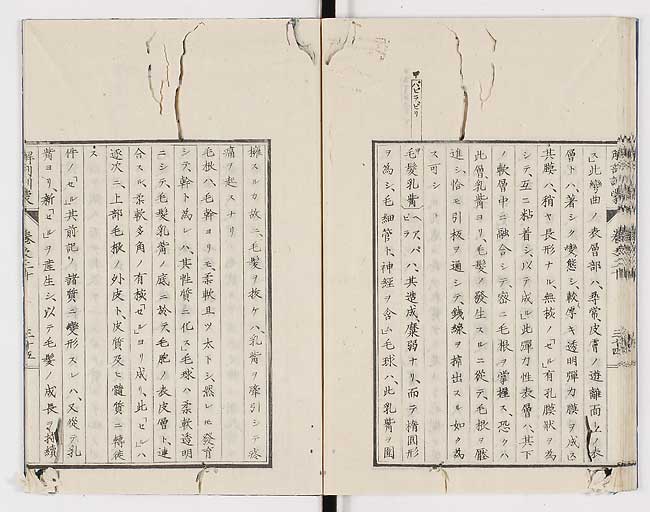 ス、此彎曲ノ表層部ハ、尋常皮膚ノ遊離面上ノ表
層トハ、著シク變態シ、較厚キ透明彈力膜ヲ成ス
其膜ハ、稍ヤ長形ナル無核ノ「セル」有孔膜狀ヲ為
シテ、互ニ粘着シ、以テ成ル此彈力性表層ハ、其下
ノ軟層中ニ融合シテ、密ニ毛根ヲ掌握ス、恐クハ
此僧乳觜ヨリ、毛髪ノ發生スルニ從テ、毛根ヲ
進シ、恰モ引板ヲ通シテ、銕線ヲ搾出スル如クタ為
ス可シ
毛髪乳觜 ヘアパ ピラ ハ、其造成、糜弱ナリ、而テ橢圓形
ヲ為シ、毛細管ト、神經ヲ含ム毛球ハ、此乳觜ヲ圍
パピラピリ
擁スルカ故ニ、毛髪ヲ拔ケハ、乳觜ヲ牽引シテ疼
痛ヲ起スナリ
毛根ハ、毛幹ヨリモ、柔軟且ツ太トシ、然レヒ發育
シテ、幹ト為レハ、其性質ニ化ス毛球ハ、柔軟透明
ニシテ、毛髪乳觜ノ底ニ於テ、毛胞ノ表皮層ト、連
合スル、柔軟多角ノ有核「セル」ヨリ成リ、此「セル」ハ
逐次ニ、上部毛根ノ外皮ト、皮質及ヒ髓質ニ轉徙
ス
件ノ「セル」其前記ノ諸質ニ變形スレハ、又從テ乳
觜ヨリ、新「セル」ヲ產生シ、以テ毛髪ノ成長ヲ持續
解剖訓蒙 卷之二十 三十五